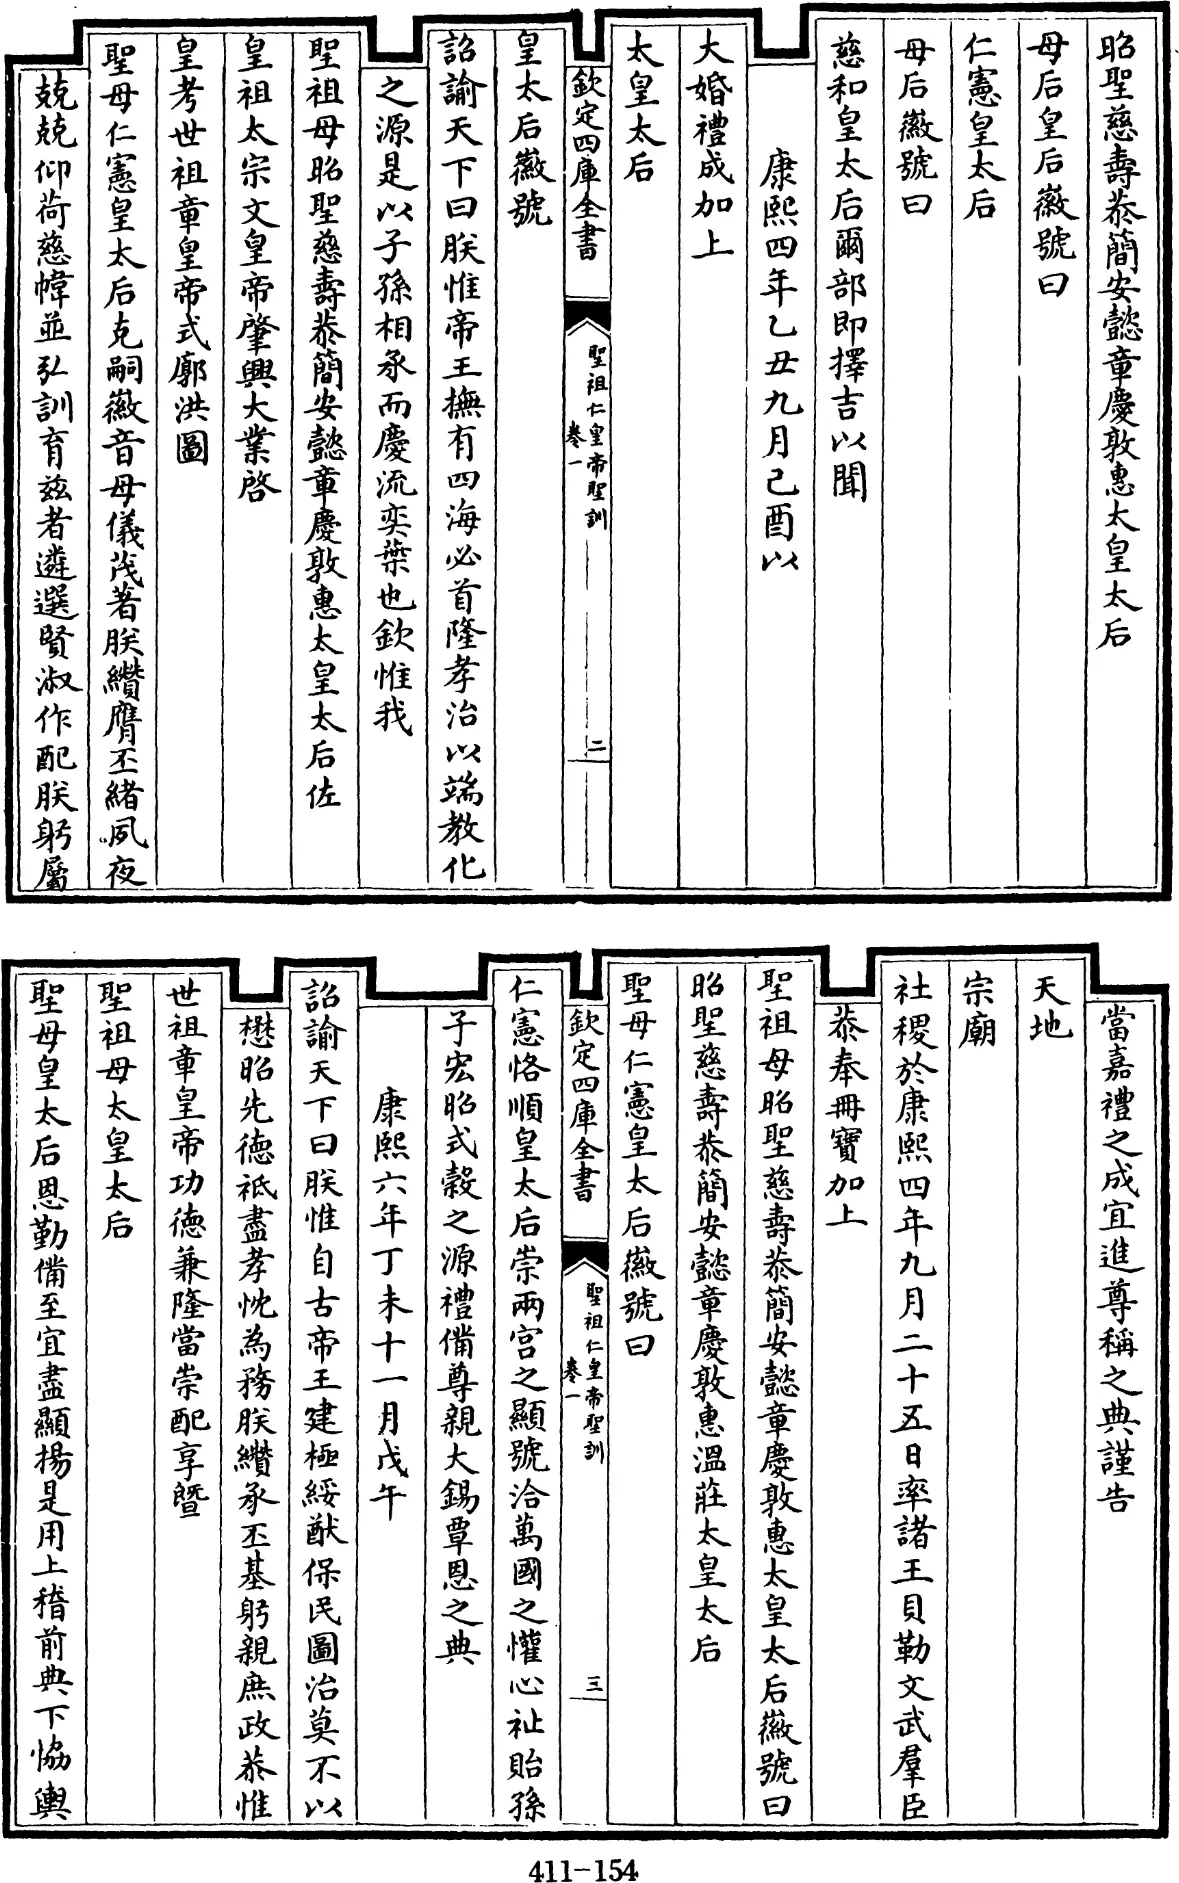 昭聖慈壽恭簡安懿章慶敦惠太皇太后
母后皇后徽號曰
仁憲皇太后
母后徽號曰
慈和皇太后爾部即擇吉以聞
康熙四年乙丑九月己酉以
大婚禮成加上
太皇太后
欽定四庫全書
聖祖仁皇帝聖訓
卷一
二
皇太后徽號
詔諭天下曰朕惟帝王撫有四海必首隆孝治以端教化
之源是以子孫相承而慶流奕葉也欽惟我
聖祖母昭聖慈壽恭簡安懿章慶敦惠太皇太后佐
皇祖太宗文皇帝肇興大業啓
皇考世祖章皇帝式廓洪圖
聖母仁憲皇太后克嗣徽音母儀茂著朕纘膺丕緒夙夜
兢兢仰荷慈幃並弘訓育兹者遴選賢淑作配朕躬屬
當嘉禮之成宜進尊稱之典謹告
天地
宗廟
社稷於康熙四年九月二十五日率諸王貝勒文武羣臣
恭奉冊寶加上
聖祖母昭聖慈壽恭簡安懿章慶敦惠太皇太后徽號曰
昭聖慈壽恭簡安懿章慶敦惠溫莊太皇太后
聖母仁憲皇太后徽號曰
欽定四庫全書
聖祖仁皇帝聖訓
卷一
三
仁憲恪順皇太后崇兩宮之顯號洽萬國之懽心祉貽孫
子宏昭式穀之源禮備尊親大錫覃恩之典
康熙六年丁未十一月戊午
詔諭天下曰朕惟自古帝王建極綏猷保民圖治莫不以
懋昭先德祗盡孝忱為務朕纘承丕基躬親庶政恭惟
世祖章皇帝功德兼隆當崇配享暨
聖祖母太皇太后
聖母皇太后恩勤備至宜盡顯揚是用上稽前典下協輿
411-154